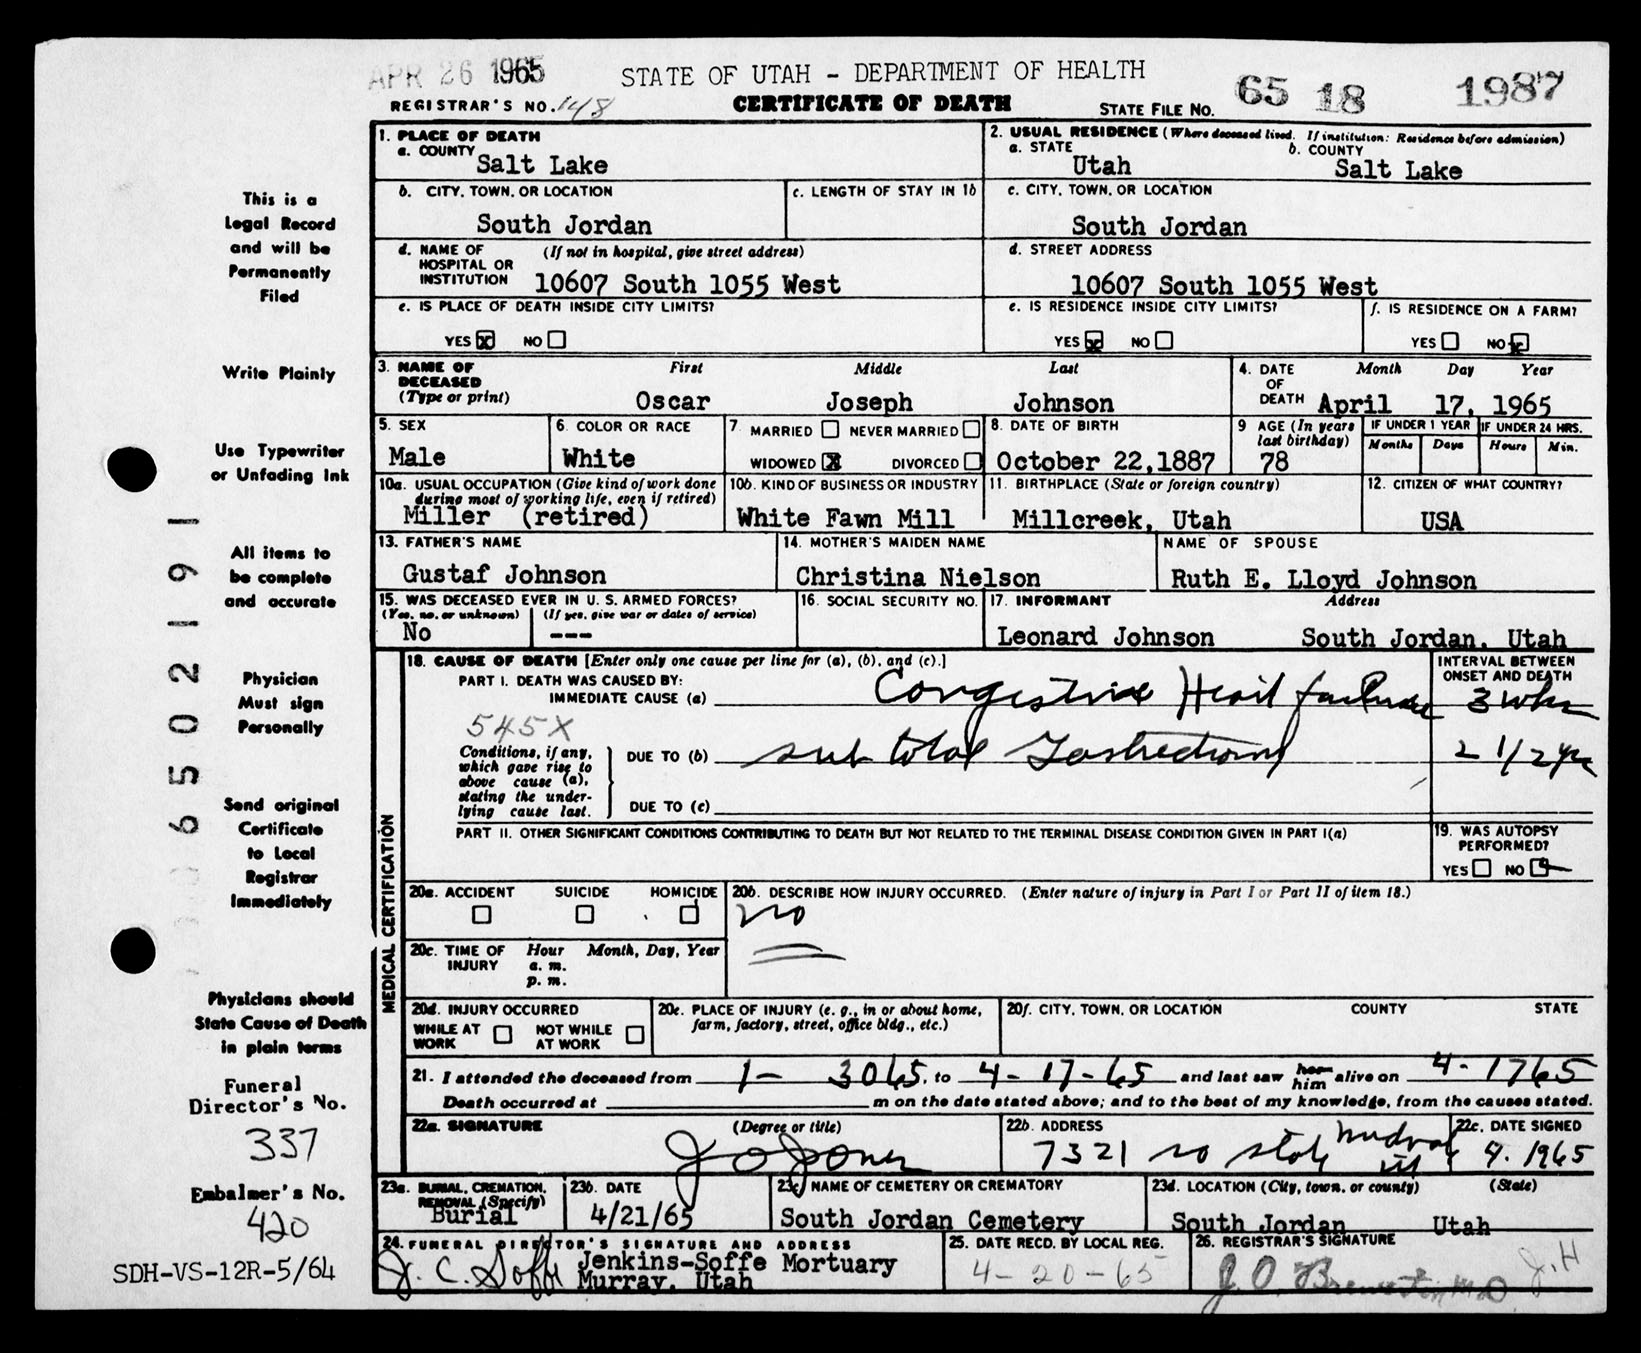 APR 26 1965
STATE OF UTAH - DEPARTMENT OF HEALTH
REGISTRAR'S NO. 148
CERTIFICATE OF DEATH
STATE FILE NO. 65 18 1987
1. PLACE OF DEATH
a. COUNTY
Salt Lake
2. USUAL RESIDENCE (Where deceased lived. If institution: Residence before admission)
a. STATE
Utah
b. COUNTY
Salt Lake
b. CITY, TOWN, OR LOCATION
South Jordan
c. LENGTH OF STAY IN 1b
c. CITY, TOWN, OR LOCATION
South Jordan
d. NAME OF HOSPITAL OR INSTITUTION
(If not in hospital, give street address)
10607 South 1055 West
d. STREET ADDRESS
10607 South 1055 West
e. IS PLACE OF DEATH INSIDE CITY LIMITS?
YES X NO
e. IS RESIDENCE INSIDE CITY LIMITS?
YES X NO
f. IS RESIDENCE ON A FARM?
YES NO X
3. NAME OF DECEASED
(Type or print)
First Middle Last
Oscar Joseph Johnson
4. DATE OF DEATH
Month Day Year
April 17, 1965
5. SEX
Male
6. COLOR OR RACE
White
7. MARRIED NEVER MARRIED
WIDOWED X DIVORCED
8. DATE OF BIRTH
October 22,1887
9 AGE (In years last birthday)
78
IF UNDER 1 YEAR
Months Days
IF UNDER 24 HRS.
Hours Min.
10a. USUAL OCCUPATION (Give kind of work done during most of working life, even if retired)
Miller (retired)
10b. KIND OF BUSINESS OR INDUSTRY
White Fawn Mill
11. BIRTHPLACE (State or foreign country)
Millcreek, Utah
12. CITIZEN OF WHAT COUNTRY?
USA
13. FATHER'S NAME
Gustaf Johnson
14. MOTHER'S MAIDEN NAME
Christina Nielson
NAME OF SPOUSE
Ruth E. Lloyd Johnson
15. WAS DECEASED EVER IN U. S. ARMED FORCES?
(Yes, no, or unknown) (If yes, give war or dates of service)
No ---
16. SOCIAL SECURITY NO.
17. INFORMANT Address
Leonard Johnson South Jordan, Utah
MEDICAL CERTIFICATION
18. CAUSE OF DEATH [Enter only one cause per line for (a), (b), and (c).]
PART I. DEATH WAS CAUSED BY:
IMMEDIATE CAUSE (a) Congestive Heart failure
INTERVAL BETWEEN ONSET AND DEATH
3 wks
545X
Conditions, if any, which gave rise to above cause (a), stating the underlying cause last.
DUE TO (b) sub total Gastrectomy
2 1/2 yrs
DUE TO (c)
PART II. OTHER SIGNIFICANT CONDITIONS CONTRIBUTING TO DEATH BUT NOT RELATED TO THE TERMINAL DISEASE CONDITION GIVEN IN PART I(a)
19. WAS AUTOPSY PERFORMED?
YES NO
20a. ACCIDENT SUICIDE HOMICIDE
20b. DESCRIBE HOW INJURY OCCURRED. (Enter nature of injury in Part I or Part II of item 18.)
no
20c. TIME OF INJURY
Hour Month, Day, Year
a. m.
p. m.
20d. INJURY OCCURRED
WHILE AT WORK NOT WHILE AT WORK
20e. PLACE OF INJURY (e. g., in or about home, farm, factory, street, office bldg., etc.)
20f. CITY, TOWN, OR LOCATION COUNTY STATE
21. I attended the deceased from 1- 3065, to 4-17-65 and last saw her him alive on 4-1765
Death occurred at m on the date stated above; and to the best of my knowledge, from the causes stated.
22a. SIGNATURE (Degree or title)
J O Jones
22b. ADDRESS
7321 so state Midvale
22c. DATE SIGNED
4.1965
23a. BURIAL, CREMATION, REMOVAL (Specify)
Burial
23b. DATE
4/21/65
23c. NAME OF CEMETERY OR CREMATORY
South Jordan Cemetery
23d. LOCATION (City, town, or county) (State)
South Jordan Utah
24. FUNERAL DIRECTOR'S SIGNATURE AND ADDRESS
J. C. Soffe Jenkins-Soffe Mortuary
Murray, Utah
25. DATE RECD. BY LOCAL REG.
4-20-65
26. REGISTRAR'S SIGNATURE
J.H
This is a
Legal Record
and will be
Permanently
Filed
Write Plainly
Use Typewriter
or Unfading Ink
All items to
be complete
and accurate
Physician
Must sign
Personally
Send original
Certificate
to Local
Registrar
Immediately
Physicians should
State Cause of Death
in plain terms
Funeral
Director's No.
337
Embalmer's No.
420
SDH-VS-12R-5/64